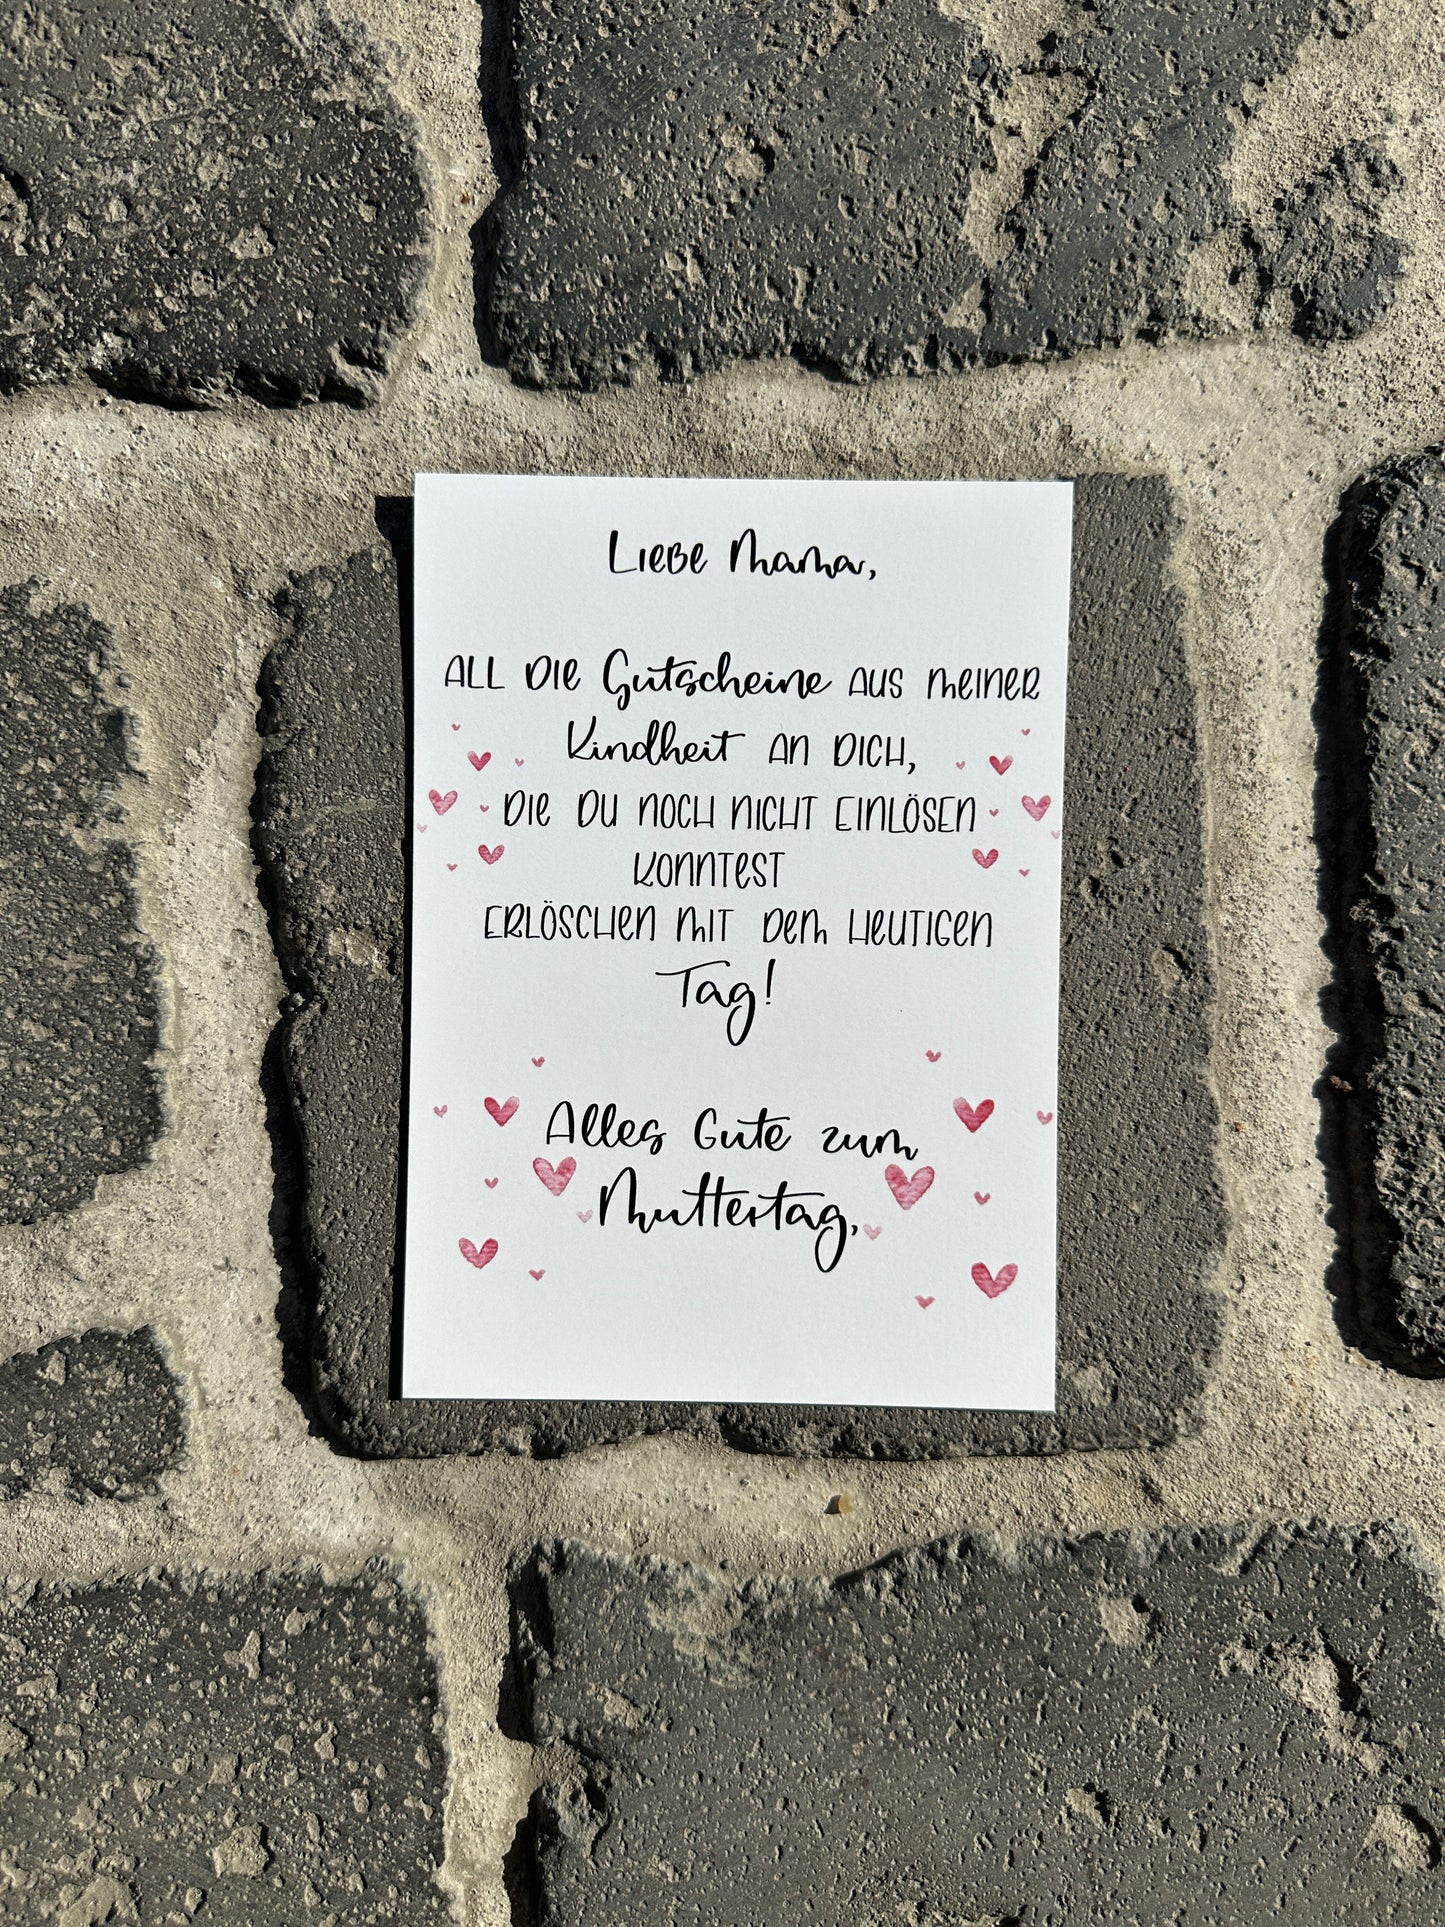 Liebe Mama,
ALL DIE Gutscheine AUS MEINER
Kindheit AN DICH,
DIE DU NOCH NICHT EINLÖSEN
KONNTEST
ERLÖSCHEN MIT DEM HEUTIGEN
Tag!
Alles Gute zum
Muttertag,